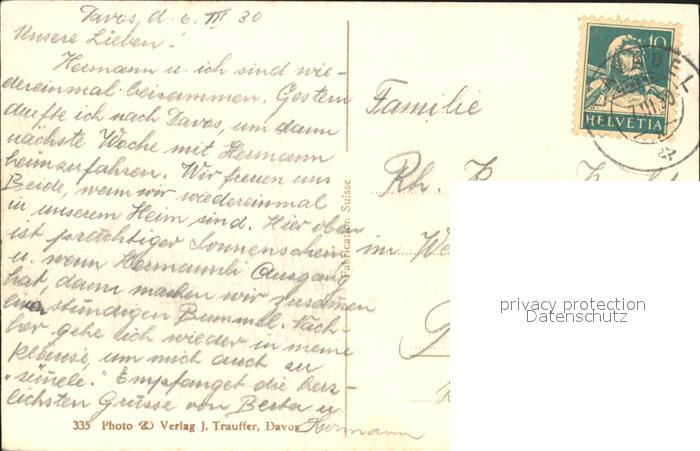 Davos, d. 6. III 30
Unsere Lieben!
Hermann u. ich sind wie-
dereinmal beisammen. Gestern
durfte ich nach Davos, um dann
nächste Woche mit Hermann
heimzufahren. Wir freuen uns
Beide, wenn wir wiedereinmal
in unserem Heim sind. Hier oben
ist prächtiger Sonnenschein
u. wenn Hermannli Ausgang
hat, dann machen wir zusamen
stündigen Bummel. Nach-
her gehe ich wieder in meine
Klause, um mich auch zu
"sünele." Empfanget die herz-
lichsten Grüsse von Berta u.
Hermann
335 Photo & Verlag J. Trauffer, Davos
Fabrication Suisse
Familie
Rh.
im
10
HELVETIA
privacy protection
Datenschutz